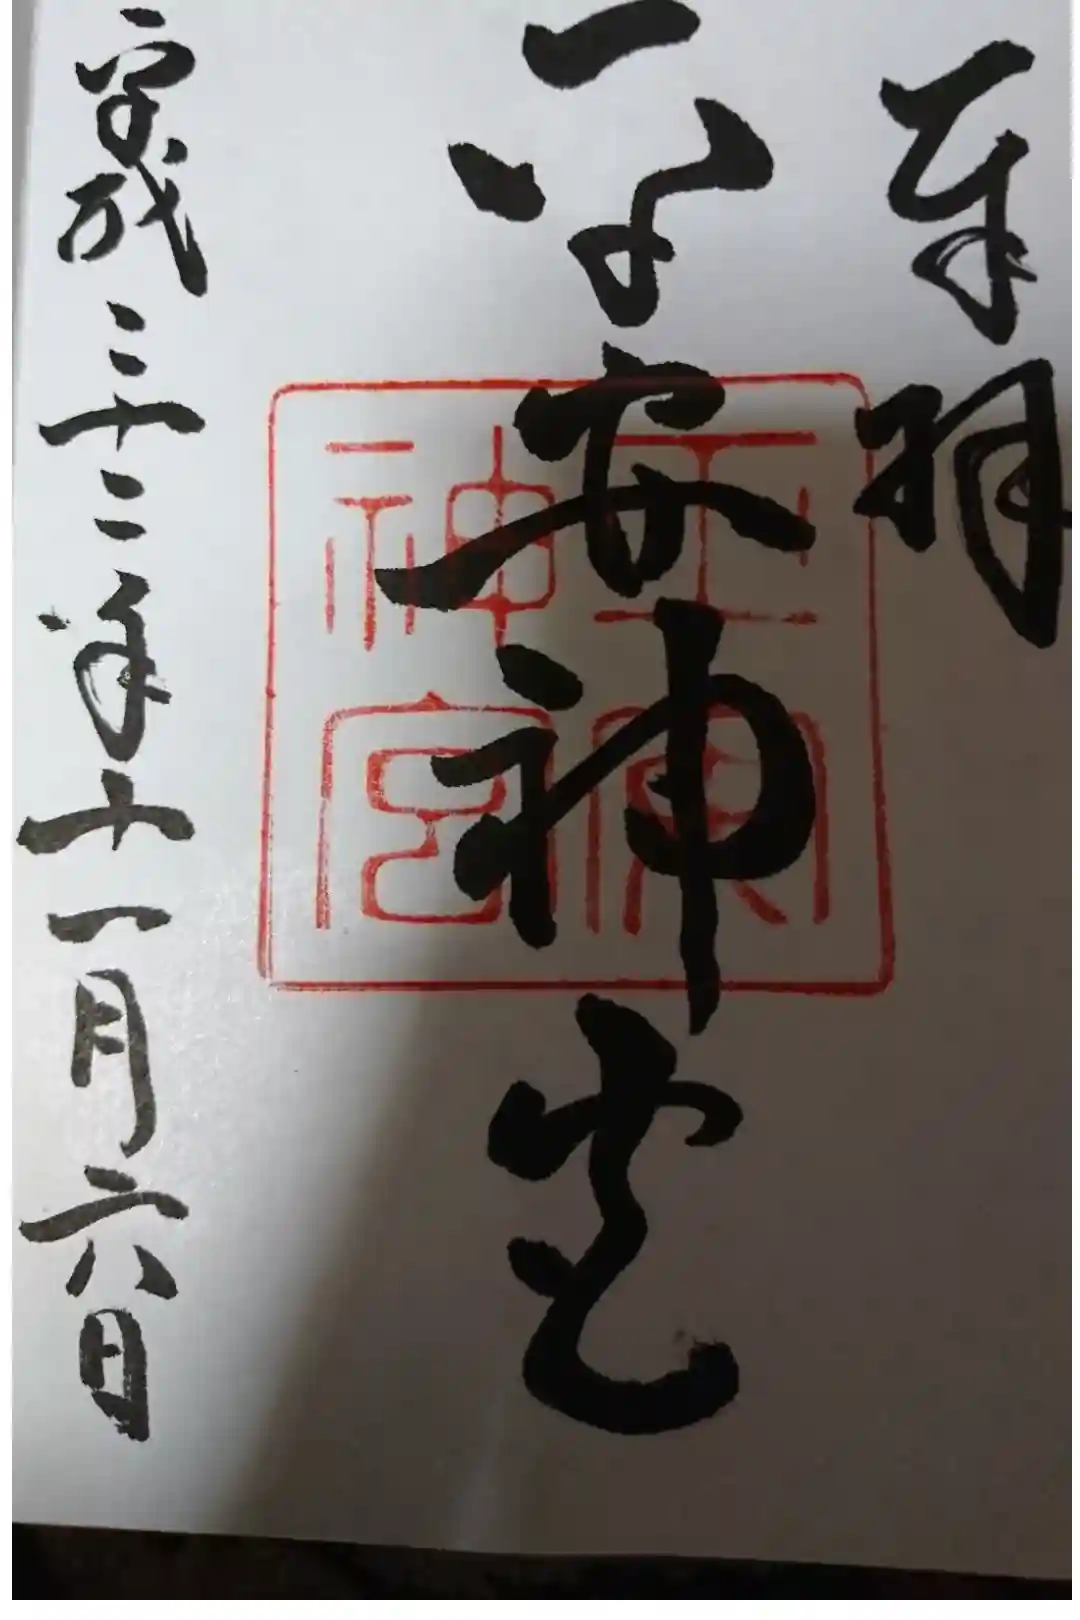 奉拝
平安神宮
平安
神宮
平成二十二年十一月六日